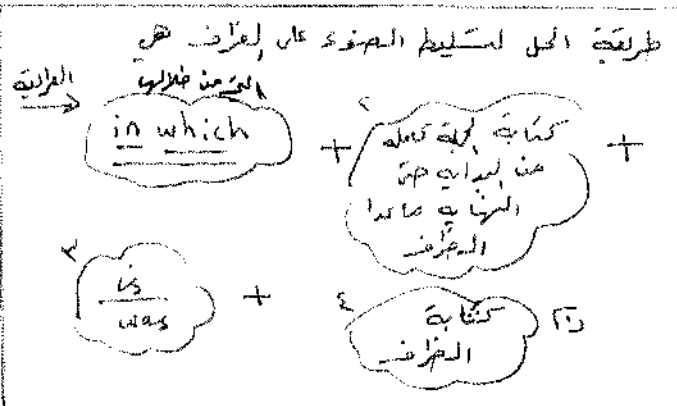 طريقة الحل لتسليط الضوء على الظرف هي
التي من خلالها
in which
+
٢
كتابة الجملة كاملة
من البداية حتى
النهاية ما عدا
الظرف
+
٣
is
was
+
٤
كتابة
الظرف